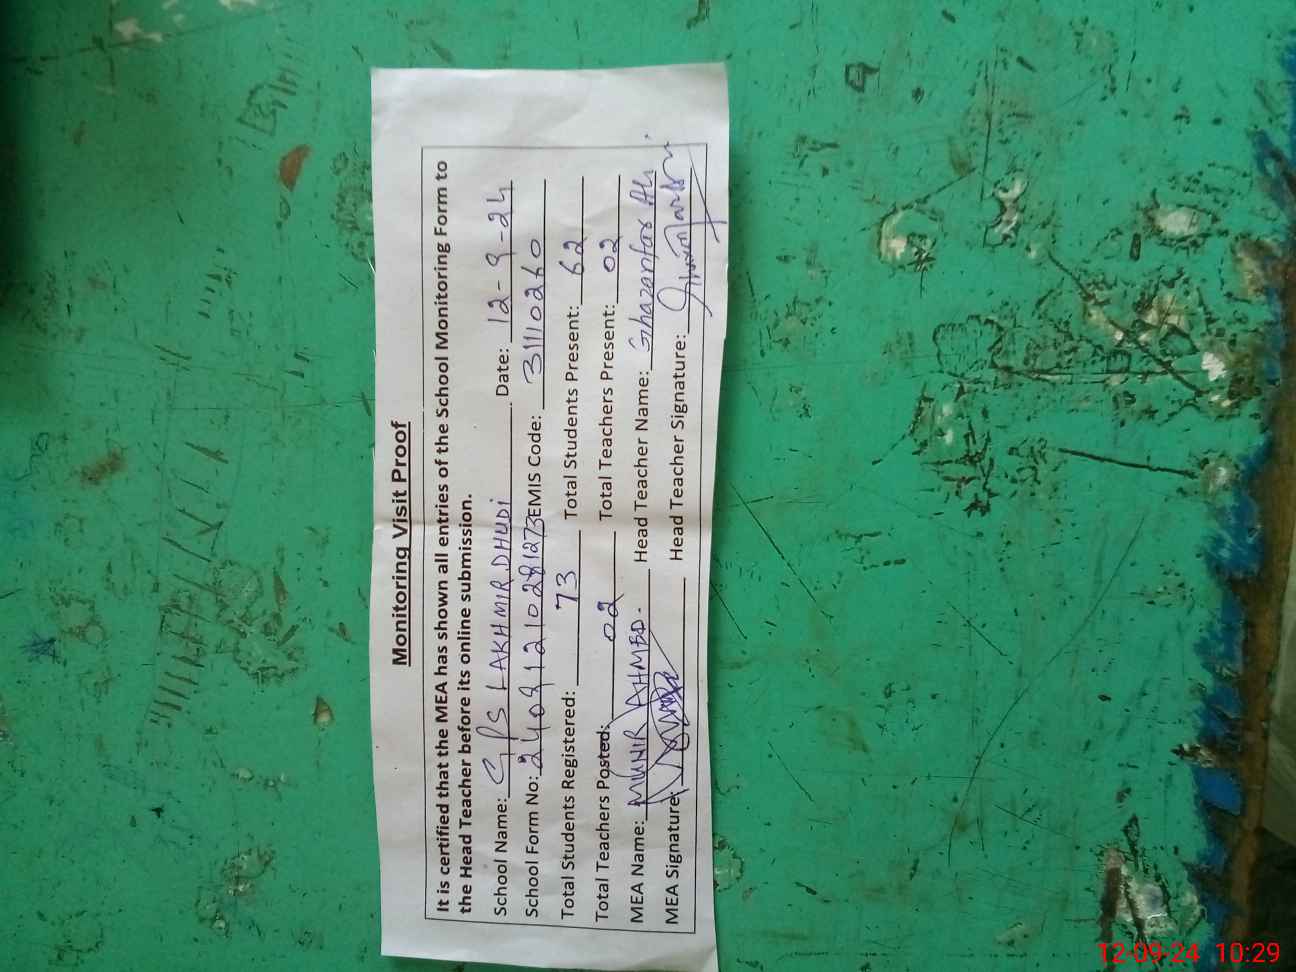 Monitoring Visit Proof
It is certified that the MEA has shown all entries of the School Monitoring Form to
the Head Teacher before its online submission.
School Name: GPS LAKHMIR DHUDI Date: 12-9-24
School Form No: EMIS Code: 31110260
Total Students Registered: 73 Total Students Present: 62
Total Teachers Posted: 02 Total Teachers Present: 02
MEA Name: MUNIR AHMED. Head Teacher Name: Ghazanfar Ali
MEA Signature: Head Teacher Signature:
12-09-24 10:29